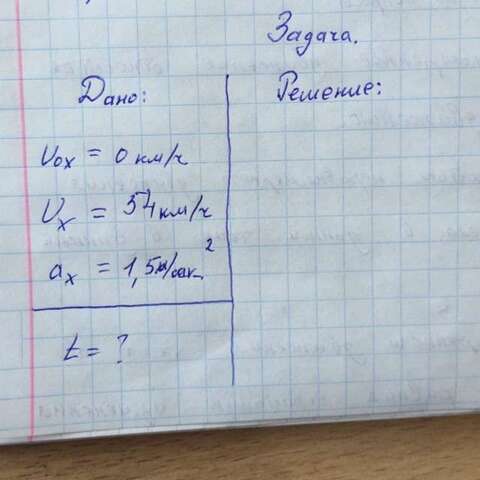 Задача.
Дано:
Vox = 0 км/ч
Vx = 54 км/ч
ax = 1,5 м/сек²
t = ?
Решение: